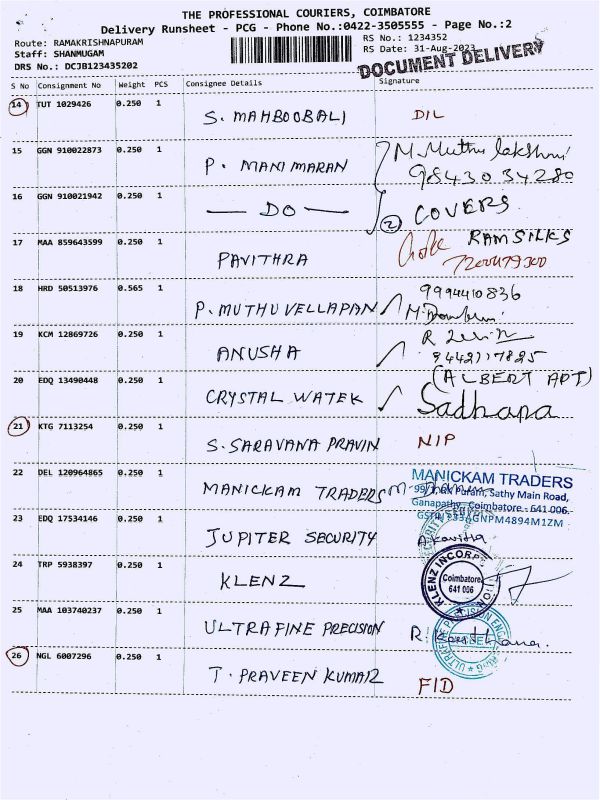 THE PROFESSIONAL COURIERS, COIMBATORE
Delivery Runsheet - PCG - Phone No.:0422-3505555 - Page No.:2
Route: RAMAKRISHNAPURAM
RS No.: 1234352
Staff: SHANMUGAM
RS Date: 31-Aug-2023
DRS No.: DCJB123435202
DOCUMENT DELIVERY
S No Consignment No Weight PCS Consignee Details Signature
14 TUT 1029426 0.250 1 S. MAHBOOBALI DIL
15 GGN 910022873 0.250 1 P. MANIMARAN M. Muthu lakshmi
9843034280
16 GGN 910021942 0.250 1 — DO — 2 COVERS
17 MAA 859643599 0.250 1 PAVITHRA RAM SILKS
18 HRD 50513976 0.565 1 P. MUTHUVELLAPAN 9994410836
19 KCM 12869726 0.250 1 ANUSHA
9442117825
20 EDQ 13490448 0.250 1 CRYSTAL WATEK (ALBERT APT)
Sadhana
21 KTG 7113254 0.250 1 S. SARAVANA PRAVIN NIP
22 DEL 120964865 0.250 1 MANICKAM TRADERS
MANICKAM TRADERS
Puram, Sathy Main Road,
Ganapathy, Coimbatore - 641 006.
23 EDQ 17534146 0.250 1 JUPITER SECURITY A. Kavitha
24 TRP 5938397 0.250 1 KLENZ
KLENZ INCORPORATION
Coimbatore
641 006
25 MAA 103740237 0.250 1 ULTRAFINE PRECISION R.
26 NGL 6007296 0.250 1 T. PRAVEEN KUMAR FID